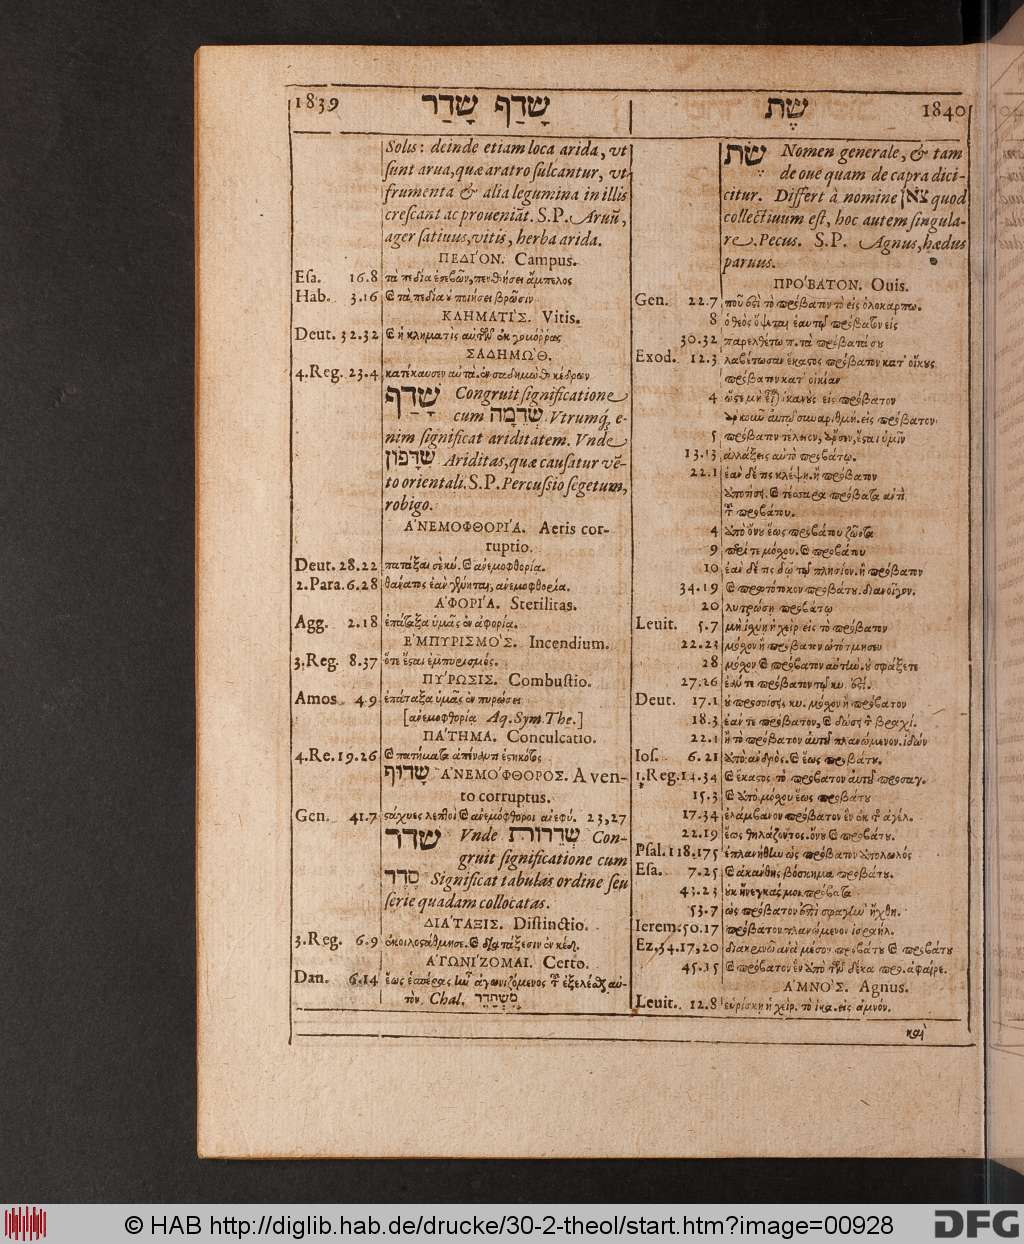 1839 שָׁדַף שָׁדַר
Solis: deinde etiam loca arida, vt
sunt arua, quæ aratro sulcantur, vt
frumenta & alia legumina in illis
crescant ac proueniāt. S.P. Aruū,
ager satiuus, vitis, herba arida.
ΠΕΔΙ'ΟΝ. Campus.
Esa. 16.8 τὰ πεδία ἐσεβῶν, πενθήσει ἄμπελος
Hab. 3.16 τὰ πεδία ὐ ποιήσει βρῶσιν
ΚΛΗΜΑΤΙ'Σ. Vitis.
Deut. 32.32 ἡ κληματὶς αὐτῶν ἐκ γομόῤῥας
ΣΑΔΗΜΩ'Θ.
4.Reg. 23.4 κατέκαυσεν αὐτὰ ἐν σαδημὼθ κέδρων
שָׁדַף Congruit significatione
cum שְׁדֵמָה. Vtrumq; e-
nim significat ariditatem. Vnde
שִׁדָּפוֹן Ariditas, quæ causatur vē-
to orientali. S.P. Percussio segetum,
robigo.
Α'ΝΕΜΟΦΘΟΡΙ'Α. Aeris cor-
ruptio.
Deut. 28.22 πατάξαι σε κύ. ἀνεμοφθορία.
2.Para. 6.28 θάνατος ἐὰν γένηται, ἀνεμοφθορία.
Α'ΦΟΡΙ'Α. Sterilitas.
Agg. 2.18 ἐπάταξα ὑμᾶς ἐν ἀφορία.
Ε'ΜΠΥΡΙΣΜΟ'Σ. Incendium.
3.Reg. 8.37 ὅτι ἔσται ἐμπυρισμός.
ΠΥ'ΡΩΣΙΣ. Combustio.
Amos 4.9 ἐπάταξα ὑμᾶς ἐν πυρώσει
[ἀνεμοφθορία Aq. Sym. The.]
ΠΑ'ΤΗΜΑ. Conculcatio.
4.Re. 19.26 πατήματα ἀπέναντι ἑστηκότος
שָׁדוּף Α'ΝΕΜΟ'ΦΘΟΡΟΣ. A ven-
to corruptus.
Gen. 41.7 στάχυες λεπτοὶ ἀνεμόφθοροι ἀνεφύ. 23,27
שדר Vnde שְׂדֵרוֹת Con-
gruit significatione cum
סֵדֶר Significat tabulas ordine seu
serie quadam collocatas.
ΔΙΑ'ΤΑΞΙΣ. Distinctio.
3.Reg. 6.9 διατάξεσιν ἐν κέδ.
Α'ΓΩΝΙ'ΖΟΜΑΙ. Certo.
Dan. 6.14 ἕως ἑσπέρας ἦν ἀγωνιζόμενος τοῦ ἐξελέσθαι αὐ-
τόν. Chal. מִשְׁתַּדַּר
שֶׂה 1840
שה Nomen generale, & tam
de oue quam de capra dici-
citur. Differt à nomine צֹאן quod
collectiuum est, hoc autem singula-
re. Pecus. S.P. Agnus, hædus
paruus.
ΠΡΟ'ΒΑΤΟΝ. Ouis.
Gen. 22.7 ποῦ ἐστὶ τὸ πρόβατον τὸ εἰς ὁλοκαρπω.
8 ὁ θεὸς ὄψεται ἑαυτῷ πρόβατον εἰς
30.32 παρελθέτω π. τὰ πρόβατά σου
Exod. 12.3 λαβέτωσαν ἕκαστος πρόβατον κατ' οἴκους
πρόβατον κατ' οἰκίαν
4 ὥστε μὴ εἶναι ἱκανοὺς εἰς πρόβατον
ἀρκοῦν αὐτῷ συναριθμή. εἰς πρόβατον
5 πρόβατον τέλειον, ἄρσεν, ἔσται ὑμῖν
13.13 ἀλλάξεις αὐτὸ προβάτῳ.
22.1 ἐὰν δέ τις κλέψη. ἢ πρόβατον
ἀποτίσῃ. τέσσαρα πρόβατα ἀντὶ
τοῦ προβάτου.
4 ἀπὸ ὄνου ἕως προβάτου ζῶντα
9 περί τε μόσχου. προβάτου
10 ἐὰν δέ τις δῷ τῷ πλησίον. ἢ πρόβατον
34.19 πρωτότοκον προβάτου. διανοῖγον.
20 λυτρώσῃ προβάτῳ
Leuit. 5.7 μὴ ἰσχύῃ ἡ χεὶρ εἰς τὸ πρόβατον
22.23 μόσχον ἢ πρόβατον ὠτότμητον
28 μόσχον πρόβατον αὐτὴν. ὐ σφάξετε
27.26 ἐάν τε πρόβατον τῷ κυ. ἐστί.
Deut. 17.1 ὐ προσοίσεις κυ. μόσχον ἢ πρόβατον
18.3 ἐάν τε πρόβατον, δώσῃ τὸ βραχί.
22.1 ἢ τὸ πρόβατον αὐτοῦ πλανώμενον. ἰδών
Ios. 6.21 ἀπὸ ἀνδρὸς. ἕως προβάτου.
1.Reg. 14.34 ἕκαστος τὸ πρόβατον αὐτοῦ προσαγ.
15.3 ἀπὸ μόσχου ἕως προβάτου
17.34 ἐλάμβανον πρόβατον ἓν ἐκ τῆς ἀγέλ.
22.19 ἕως θηλάζοντος. ὄνου προβάτου.
Psal. 118.175 ἐπλανήθην ὡς πρόβατον ἀπολωλός
Esa. 7.25 ἀκάνθης βόσκημα προβάτου.
43.23 ὐκ ἤνεγκάς μοι πρόβατα
53.7 ὡς πρόβατον ἐπὶ σφαγὴν ἤχθη.
Ierem. 50.17 πρόβατον πλανώμενον ἰσραήλ.
Ez. 34.17,20 διακρινῶ ἀνὰ μέσον προβάτου προβάτου
45.15 πρόβατον ἓν ἀπὸ τῶν δέκα προ. ἀφαίρε.
Α'ΜΝΟ'Σ. Agnus.
Leuit. 12.8 εὑρίσκῃ ἡ χεὶρ. τὸ ἱκα. εἰς ἀμνόν.
καὶ
© HAB http://diglib.hab.de/drucke/30-2-theol/start.htm?image=00928
DFG